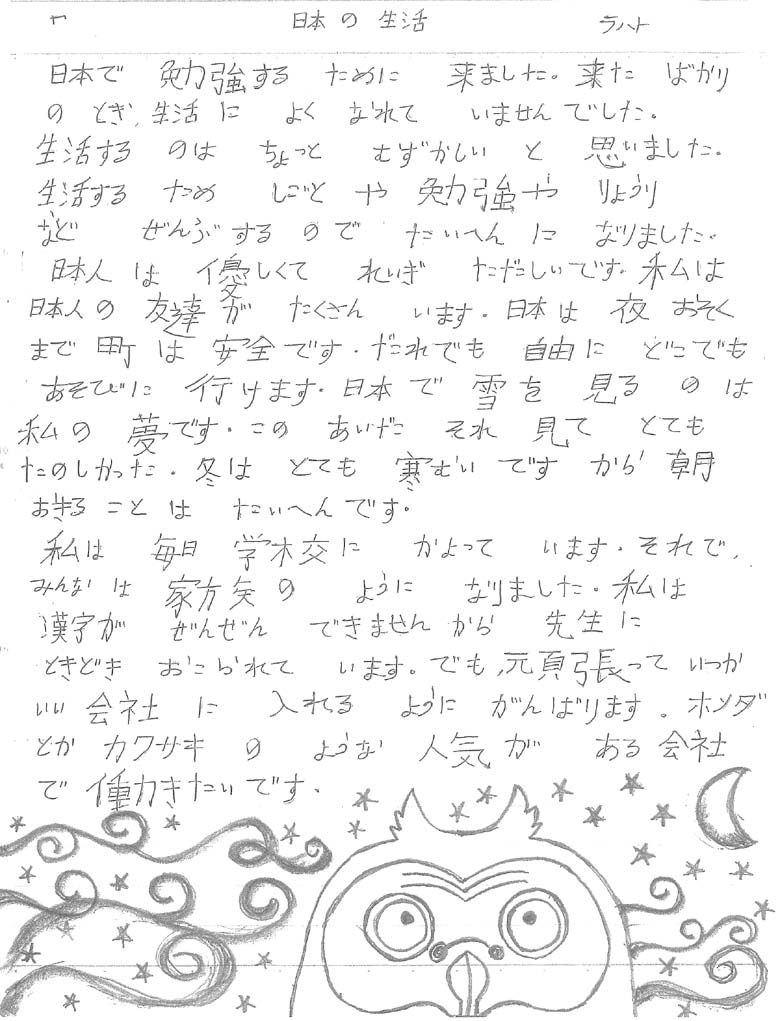 日本の生活 ラハト
日本で 勉強する ために 来ました。来た ばかり
の とき、生活に よく なれて いませんでした。
生活する のは ちょっと むずかしい と 思いました。
生活する ため しごと や 勉強や りょうり
など ぜんぶするので たいへん に なりました。
日本人 は 優しくて れいぎ ただしいです。私は
日本人の 友達が たくさん います。日本は 夜 おそく
まで 町は 安全です。だれでも 自由に どこでも
あそびに 行けます。日本で 雪を 見る の は
私の 夢です。この あいだ それ 見て とても
たのしかった。冬は とても 寒むい です から 朝
おきる ことは たいへんです。
私は 毎日 学校に かよって います。それで、
みんな は 家族の ように なりました。私は
漢字が ぜんぜん できません から 先生に
ときどき おこられて います。でも、元頑張って いつか
いい 会社 に 入れる ように がんばります。ホンダ
とか カワサキ の ような 人気が ある 会社
で 働きたいです。